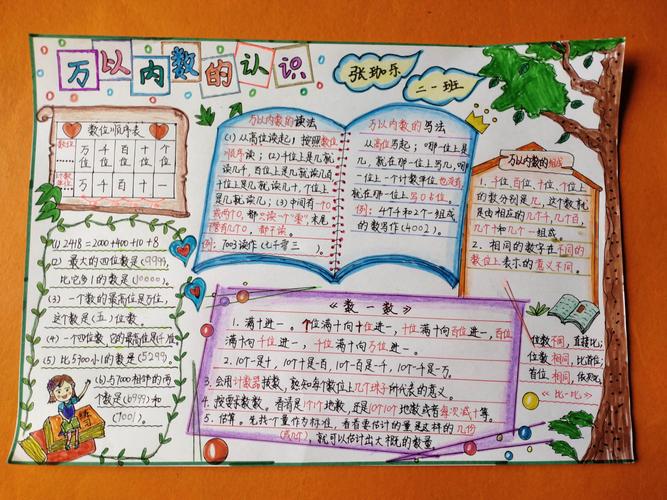 万以内数的认识
张珈乐
二一班
数位顺序表
数位 万位 千位 百位 十位 个位
计数单位 万 千 百 十 一
(1) 2418=2000+400+10+8
(2) 最大的四位数是(9999),
比它多1的数是(10000)。
(3) 一个数的最高位是万位,
这个数是(五)位数
(4) 一个四位数,它的最高位是千位
(5) 比5300小1的数是(5299)。
(6) 与7000相邻的两
个数是(6999)和
(7001)。
万以内数的读法
(1) 从高位读起;按照数位
顺序读;(2)千位上是几就
读几千,百位上是几就读几百
十位上是几就读几十,个位上
是几就读几;(3)中间有一个0
或两个0,都只读一个“零”,末尾
不管有几个0,都不读。
例:7003读作(七千零三)。
万以内数的写法
从高位写起;哪一位上是
几,就在那一位上写几;哪一
位上一个计数单位也没有,
就在那一位上写0占位。
例:4个千和2个一组成
的数写作(4002)。
万以内数的组成
1. 千位、百位、十位、个位上
的数分别是几,这个数就
是由相应的几个千,几个百,
几个十和几个一组成
2. 相同的数字在不同的
数位上表示的意义不同。
《数一数》
1. 满十进一。个位满十向十位进一,十位满十向百位进一,百位
满十向千位进一,千位满十向万位进一。
2. 10个一是十,10个十是一百,10个一百是一千,10个一千是一万。
3. 会用计数器拨数,熟知每个数位上几个珠子所代表的意义。
4. 按要求数数,看清是1个1个地数,还是10个10个地数或者每次减十等。
5. 估算。先找个量作为标准,看看要估计的量是这样的几份
(或几个),就可以估计出大概的数量
位数不同,直接比;
位数相同,比首位;
首位相同,依次比。
《比一比》